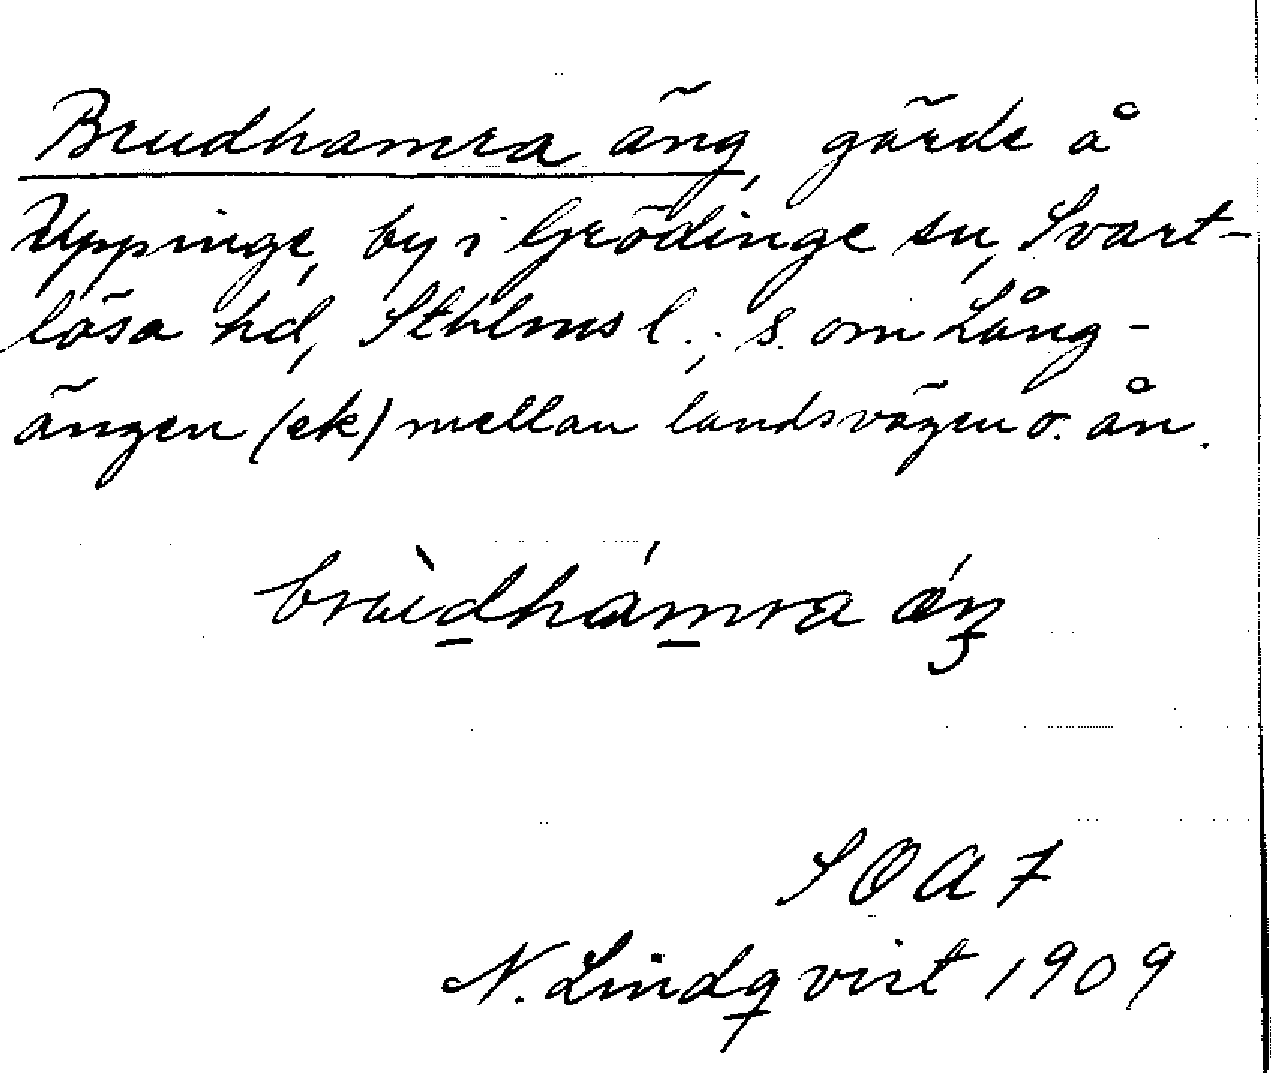 Brudhamra äng, gärde å
Uppinge, by i Grödinge sn, Svart-
lösa hd, Sthlms l.; s. om Lång-
ängen (ek) mellan landsvägen o. ån.
brùdhámra æ´ŋ
SOA 7
N. Lindqvist 1909